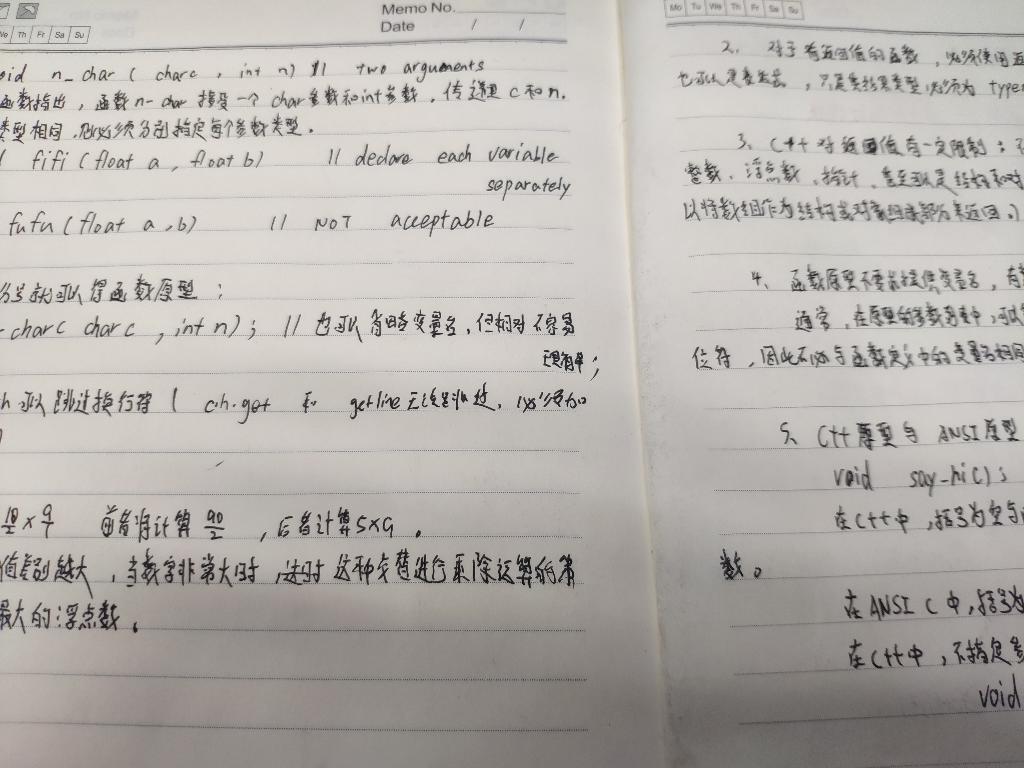 Memo No.
Date / /
We Th Fr Sa Su
oid n_char ( char c , int n) // two arguments
函数指出，函数 n-char 接受一个 char 参数和 int 参数。传递 c 和 n.
类型相同，必须分别指定每个参数类型。
fifi ( float a , float b ) // declare each variable
separately
fufu ( float a , b ) // NOT acceptable
分号就可以得函数原型：
char( char c , int n); // 也可以省略变量名，但相对不容易
理解；
可以跳过换行符 ( cin.get 和 getline 无法跳过，必须加
)
× 9 前者将计算 90/2 ，后者计算5×9。
值差别越大，当数字非常大时，这时这种交替进行乘除运算的策
最大的浮点数。
Mo Tu We Th Fr Sa Su
2、对于有返回值的函数，必须使用返
也可以是表达式，只是其结果类型必须为 type
3、C++ 对返回值有一定限制：不
整数、浮点数、指针，甚至可以是结构和对
以将数组作为结构或对象组成部分来返回。)
4、函数原型不要求提供变量名，有
通常，在原型的参数列表中，可以
位符，因此不必与函数定义中的变量名相同
5、C++ 原型与 ANSI 原型
void say-hi();
在C++中，括号为空与
数。
在 ANSI C 中，括号为
在C++中，不指定参
void